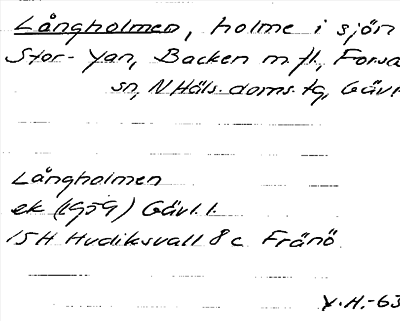 Långholmen, holme i sjön
Stor-Yan, Backen m fl, Forsa
sn, N Häls. doms. tg, Gävl
Långholmen
ek (1959) Gävl. l.
15H Hudiksvall 8c Fränö
Y.H.-63